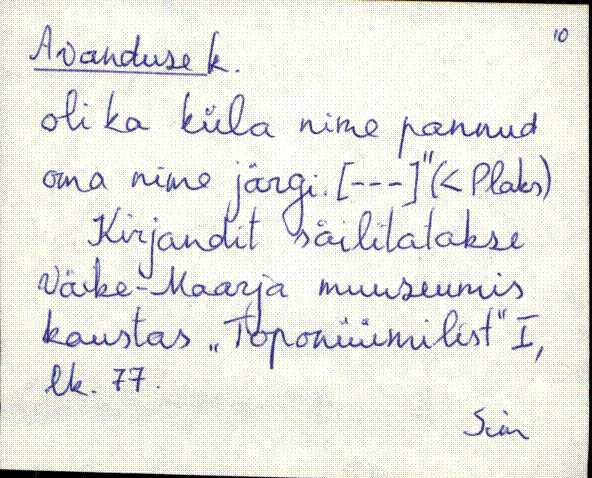 10
Avanduse k.
oli ka küla nime pannud
oma nime järgi. [---]" (< Plaks)
Kirjandit säilitatakse
Väike-Maarja muuseumis
kaustas „Toponüümilist" I,
lk. 77.